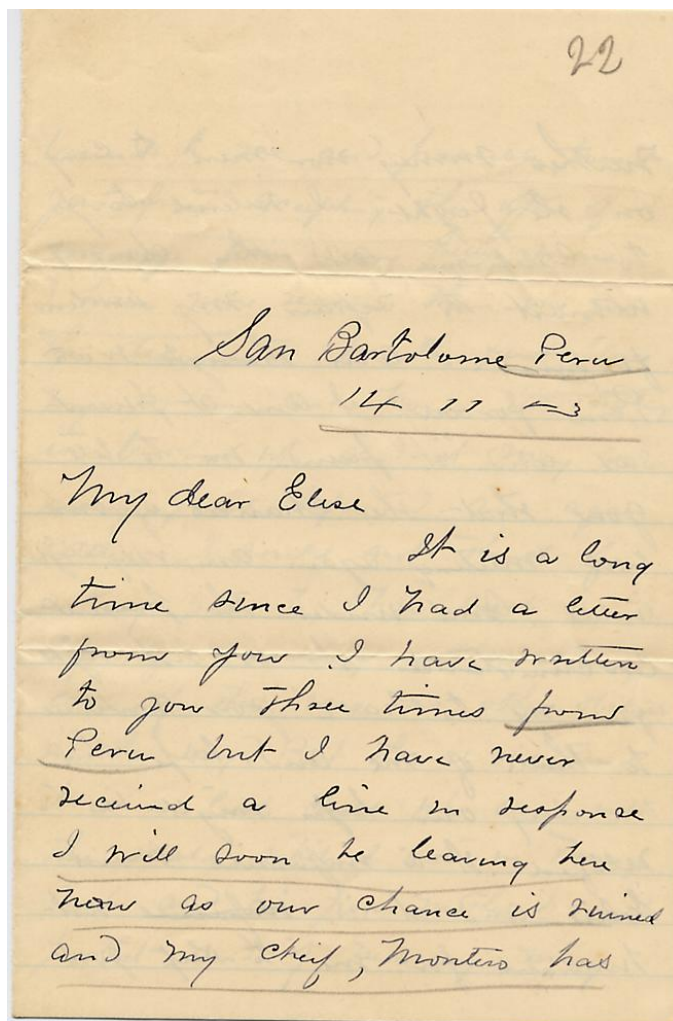 22
San Bartolome Peru
14 11
My dear Elise
It is a long
time since I had a letter
from you I have written
to you three times from
Peru but I have never
received a line in response
I will soon be leaving here
now as our chance is ruined
and my cheif, Montero has